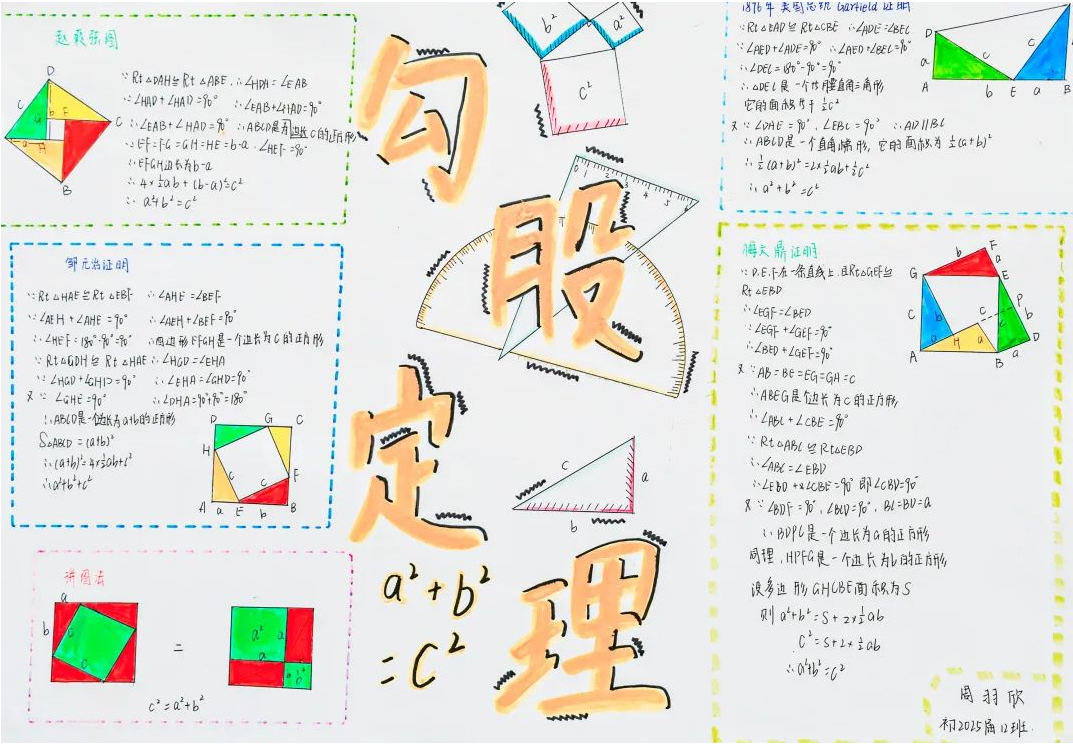 赵爽弦图
D
C
b
F
G
C
a
H
A
B
∵Rt△DAH≌Rt△ABE.∴∠HDA=∠EAB
∵∠HAD+∠HAD=90° ∴∠EAB+∠HAD=90°
∴∠EAB+∠HAD=90° ∴ABCD是为边长C的正方形
∵EF=FG=GH=HE=b-a.∠HEF=90°
∴EFGH边长为b-a
∴4×½ab+(b-a)²=c²
∴a²+b²=c²
邹元治证明
∵Rt△HAE≌Rt△EBF ∴∠AHE=∠BEF
∵∠AEH+∠AHE=90° ∴∠AEH+∠BEF=90°
∴∠HEF=180°-90°=90° ∴四边形EFGH是一个边长为C的正方形
∵Rt△GDH≌Rt△HAE ∴∠HGD=∠EHA
∵∠HGD+∠GHD=90° ∴∠EHA=∠GHD=90°
又∵∠GHE=90° ∴∠DHA=90°+90°=180°
∴ABCD是一个边长为a+b的正方形
S△ABCD=(a+b)²
∴(a+b)²=4×½ab+c²
∴a²+b²+c²
D
G
C
H
F
c
c
A
a
E
b
B
拼图法
a
b
c
c
=
a²
a
a
b
b²
c²=a²+b²
勾股定理
b²
a²
c²
0 1 2 3 4 5 6
c
a
b
a²+b²
=C²
1876年美国总统Garfield证明
∵Rt△EAD≌Rt△CBE ∴∠ADE=∠BEC
∵∠AED+∠ADE=90° ∴∠AED+∠BEC=90°
∴∠DEC=180°-90°=90°
∴△DEC是一个等腰直角三角形
它的面积等于½c²
又∵∠DAE=90°,∠EBC=90° ∴AD∥BC
∴ABCD是一个直角梯形,它的面积为½(a+b)²
∴½(a+b)²=2×½ab+½c²
∴a²+b²=c²
D
c
c
a
b
A
b
E
a
B
梅文鼎证明
∵D.E.F在一条直线上,且Rt△GEF≌
Rt△EBD
∴∠EGF=∠BED
∵∠EGF+∠GEF=90°
∴∠BED+∠GEF=90°
又∵AB=BE=EG=GA=c
∴ABEG是边长为c的正方形
∴∠ABC+∠CBE=90°
∵Rt△ABC≌Rt△EBD
∴∠ABC=∠EBD
∴∠EBD+∠CBE=90°即∠CBD=90°
又∵∠BDF=90°,∠BCD=90°,BC=BD=a
∴BDPC是一个边长为a的正方形
同理,HPFG是一个边长为b的正方形
设多边形GHCBE面积为S
则a²+b²=S+2×½ab
C²=S+2×½ab
∴a²+b²=c²
F
b
a
G
E
C
b
c
c
P
b
a
H
a
D
A
B
a
周羽欣
初2025届12班.